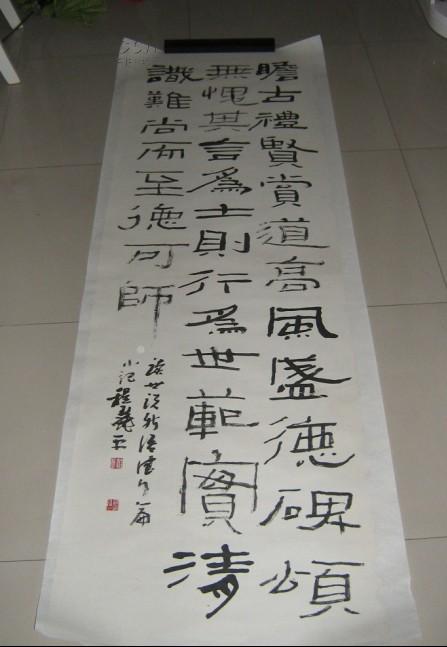 瞻古禮賢賞道高風盛德碑頌
無愧其言爲士則行爲世範實清
識難尚而至德可師
讀世說新語德行篇
小記程